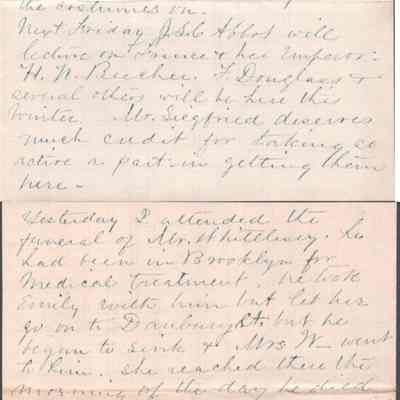 the costumes on.
Next Friday J.S.C Abbot will
lecture on France & her Emperor.
H. W. Beecher. F Douglass &
several others will be here this
Winter. Mr. Siegfried deserves
much credit for taking so
active a part in getting them
here -
Yesterday I attended the
funeral of Mr. Whittlesey. he
had been in Brooklyn for
Medical treatment, he took
Emily with him but let her
go on to Danbury Ct. but he
began to sink & Mrs W went
to him. she reached there the
morning of the day he died